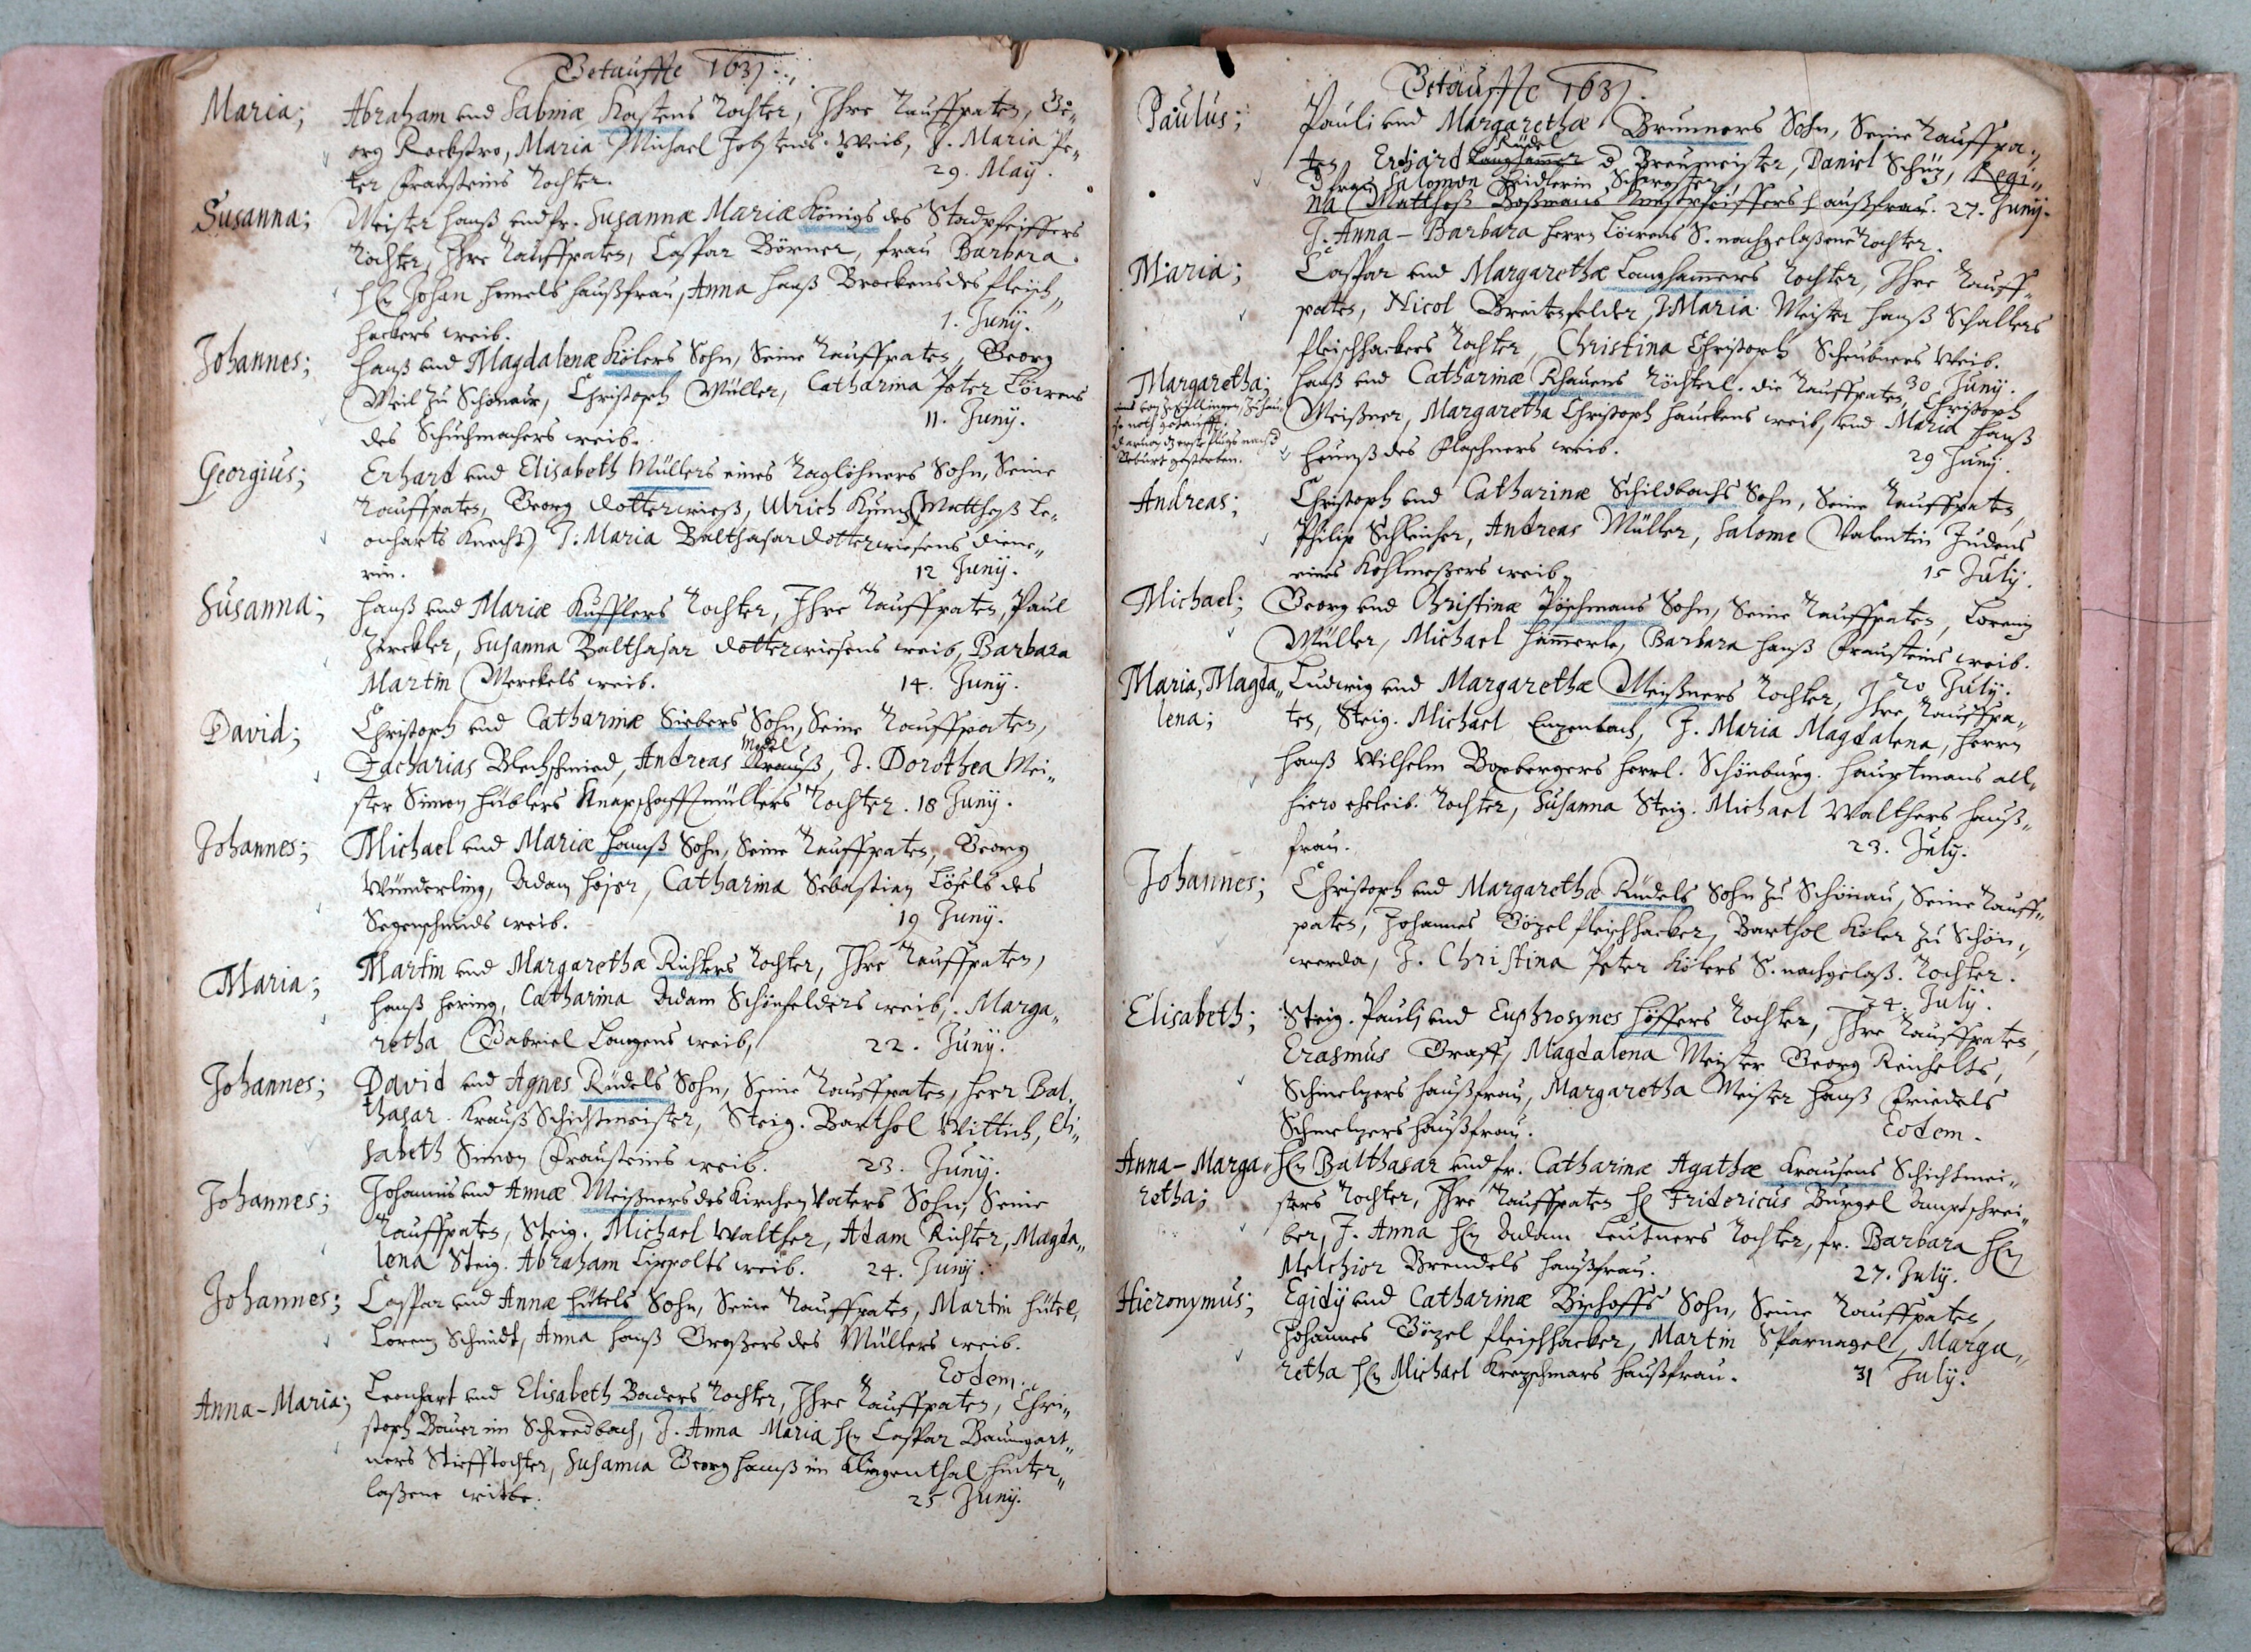 Getauffte 1631.
Maria; Abraham und Sabinæ Kastens Tochter, Ihre Tauffpaten, Ge-
org Rockstro, Maria Michael Weib, J. Maria Pe-
ter Frausteins Tochter. 29. Maÿ.
Susanna; Meister Hanß und fr. Susannæ Mariæ Königs des Stadpfeiffers
Tochter, Ihre Tauffpaten, Caspar Börner, frau Barbara
Hn Johan Hemels haußfrau, Anna Hanß Brockens des fleisch-
hackers weib. 1. Junÿ.
Johannes; Hanß und Magdalenæ Kölers Sohn, Seine Tauffpaten, Georg
Weil zu Schönau, Christoph Müller, Catharina Peter Löwens
des Schuchmachers weib. 11. Junÿ.
Georgius; Erhard und Elisabeth Müllers eines Taglöhners Sohn, Seine
Tauffpaten, Georg Dotterwieß, Ulrich (Mattheß Le-
onharts Knecht) J. Maria Balthasar Dotterwiesens diene-
rin. 12 Junÿ.
Susanna; Hanß und Mariæ Kufflers Tochter, Ihre Tauffpaten, Paul
Zirckler, Susanna Balthasar Dotterwiesens weib, Barbara
Martin Merckels weib. 14. Junÿ.
David; Christoph und Catharinæ Siebers Sohn, Seine Tauffpaten,
Zacharias Blechschmied, Andreas Krauß, J. Dorothea Mei-
ster Simon Hüblers Knapschafftmüllers Tochter. 18 Junÿ.
Johannes; Michael und Mariæ Hanß Sohn, Seine Tauffpaten, Georg
Wünderling, Adam Hojer, Catharina Sebastian Lösels des
Segenschmids weib. 19 Junÿ.
Maria; Martin und Margarethæ Richters Tochter, Ihre Tauffpaten,
Hanß Hering, Catharina Adam Schönfelders weib, Marga-
retha Gabriel Langens weib, 22. Junÿ.
Johannes; David und Agnes Rüdels Sohn, Seine Tauffpaten, Herr Bal-
thasar Krauß Schichtmeister, Steig. Barthol Wittich, Eli-
sabeth Simon Frausteins weib. 23. Junÿ.
Johannes; Johannis und Annæ Meißners des Kirchen Vaters Sohn, Seine
Tauffpaten, Steig. Michael Walther, Adam Richter, Magda-
lena Steig. Abraham Lippolts weib. 24. Junÿ.
Johannes; Caspar und Annæ Hütels Sohn, Seine Tauffpaten, Martin Hütel,
Lorenz Schmidt, Anna Hanß Großers des Müllers weib.
Eodem.
Anna-Maria; Leonhart und Elisabeth Baders Tochter, Ihre Tauffpaten, Chri-
stoph Bauer im Schwedbach, J. Anna Maria Hn Caspar Baumgart-
ners Stiefftochter, Susanna Georg Hanß im Klingenthal hinter-
laßene witbe. 25 Junÿ.
Getauffte 1631.
Paulus; Pauli und Margarethæ Brunners Sohn, Seine Tauffpa-
Rüdel
ten Erhard Langhammer d. Breumeister, Daniel Schüz, Regi-
d frau Salomon
na Mattheß haußfrau. 27. Junÿ.
J. Anna-Barbara Herrn Löwens S. nachgelaßene Tochter.
Maria; Caspar und Margarethæ Langhamers Tochter, Ihre Tauff-
paten, Nicol Breitenfelder, J. Maria Meister Hanß Schallers
fleischhackers Tochter, Christina Christoph Scheubners Weib.
30 Junÿ.
Margaretha; Hanß und Catharinæ Khauens Töchterl. die Tauffpaten Christoph
Meißner, Margaretha Christoph Hauckens weib, und Maria Hanß
des Flaschners weib. 29 Junÿ.
Andreas; Christoph und Catharinæ Schildbachs Sohn, Seine Tauffpaten,
Philip Schleicher, Andreas Müller, Salome Valentin Judens
eines Kohlmeßers weib. 15 Julÿ.
Michael; Georg und Christinæ Pöschmans Sohn, Seine Tauffpaten, Lorenz
Müller, Michael Hammerle, Barbara Hanß Frausteins weib.
20 Julÿ.
Maria, Magda- Ludwig und Margarethæ Meißners Tochter, Ihre Tauffpa-
lena; ten, Steig. Michael Enzenbach, J. Maria Magdalena, Herrn
Hanß Wilhelm Boxbergers Herrl. Schönburg. Hauptmans all-
hiero eheleib. Tochter, Susanna Steig. Michael Walthers Hauß-
frau. 23. Julÿ.
Johannes; Christoph und Margarethæ Rüdels Sohn zu Schönau, Seine Tauff-
paten, Johannes Gözel fleischhacker, Barthol Köler zu Schön-
werda, J. Christina Peter Kölers S. nachgelaß. Tochter.
24. Julÿ.
Elisabeth; Steig. Pauli und Euphrosynes Höffers Tochter, Ihre Tauffpaten,
Erasmus Graff, Magdalena Meister Georg Reichelts,
Schmelzers haußfrau, Margaretha Meister Hanß Friedels
Schmelzers haußfrau. Eodem.
Anna-Marga- Hn Balthasar und fr. Catharinæ Agathæ Krausens Schichtmei-
retha; sters Tochter, Ihre Tauffpaten H. Fridericus Bürgel Amptschrei-
ber, J. Anna Hn Adam Leutners Tochter, fr. Barbara Hn
Melchior Brendels haußfrau. 27. Julÿ.
Hieronymus; Egidÿ und Catharinæ Bischoffs Sohn, Seine Tauffpaten,
Johannes Gözel fleischhacker, Martin Sparnagel, Marga-
retha Hn Michael Krezschmars haußfrau. 31 Julÿ.